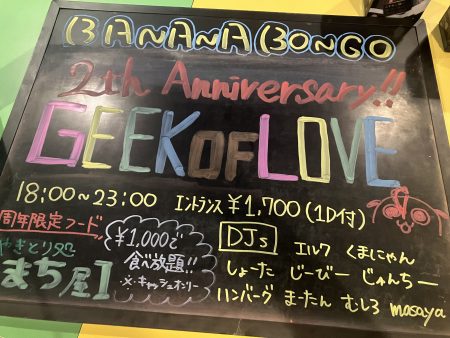 BANANA BONGO
2th Anniversary!!
GEEK OF LOVE
18:00～23:00 エントランス ¥1,700(1D付)
周年限定フード
やきとり処
まち屋
¥1,000で
食べ放題!!
※キャッシュオンリー
DJs エルク くまにゃん
しょーた じーびー じゅんちー
ハンバーグ まーたん むしろ masaya